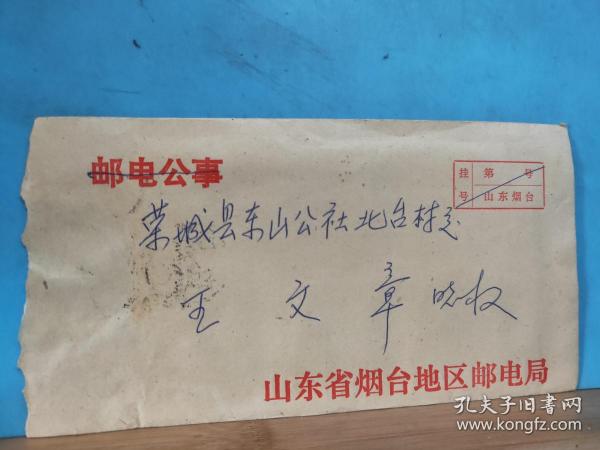 邮电公事
挂 第 号
号 山东烟台
荣城县东山公社北台村
王文章
山东省烟台地区邮电局
孔夫子旧书网
www.kongfz.com